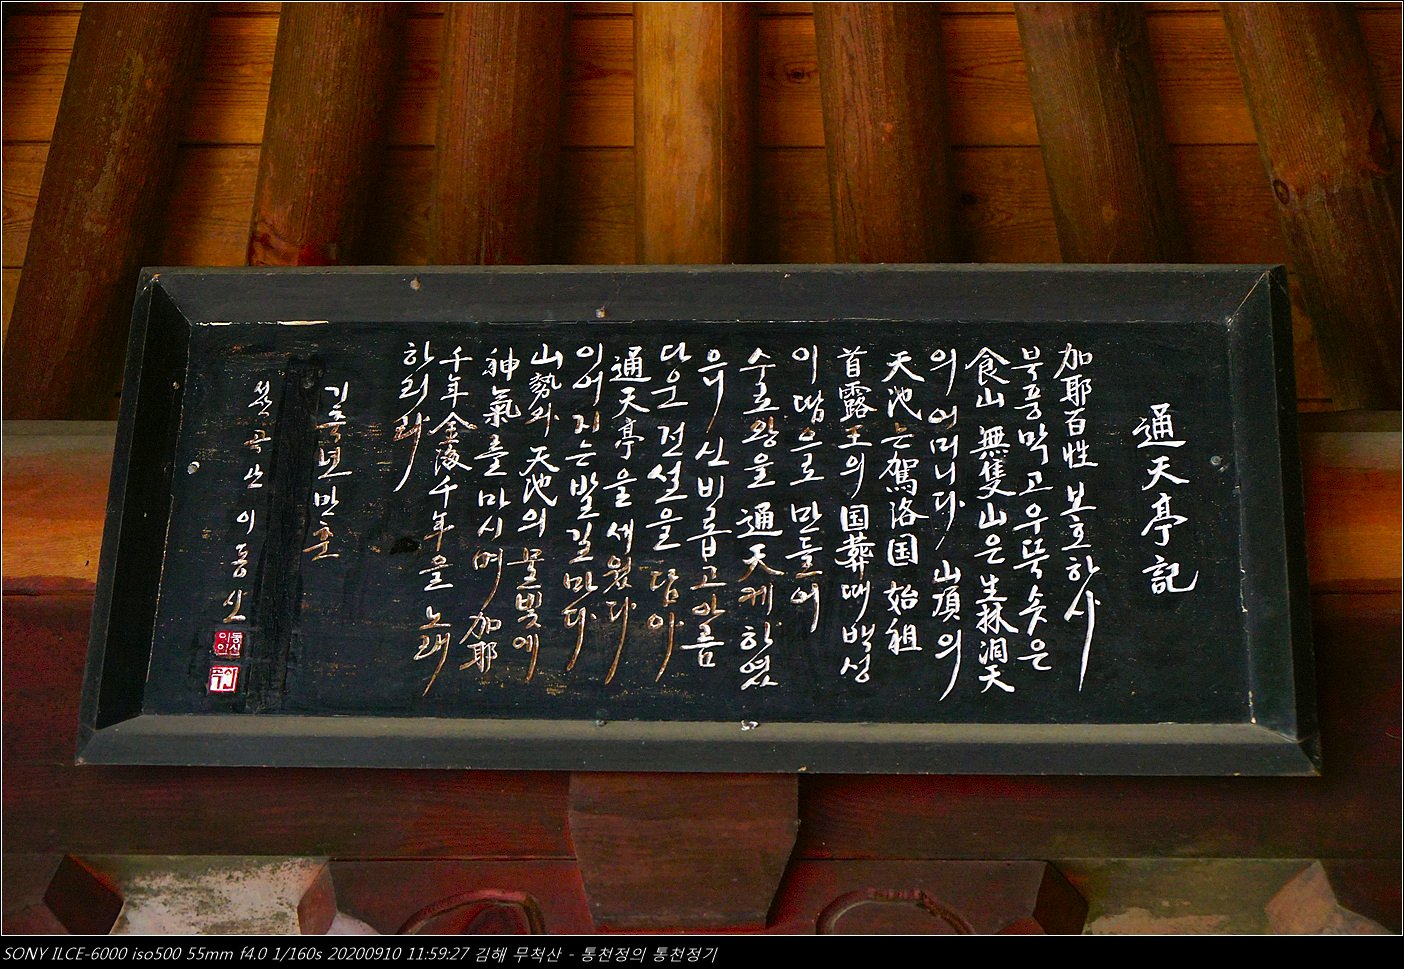 通天亭記
加耶百性 보호하사
북풍막고 우뚝솟은
食山 無隻山은 生林洞天
의 어머니다 山頂의
天池는 駕洛国 始祖
首露王의 国葬때 백성
이 땀으로 만들어
수로왕을 通天케 하였
으니 신비롭고 아름
다운 전설을 담아
通天亭을 세웠다
이어지는 발길마다
山勢와 天池의 물빛에
神氣를 마시며 加耶
千年 金海千年을 노래
하리라
기축년 만춘
이동신
SONY ILCE-6000 iso500 55mm f4.0 1/160s 20200910 11:59:27 김해 무척산 - 통천정의 통천정기